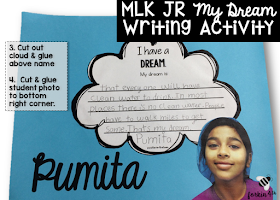 MLK JR My Dream
Writing Activity
3. Cut out
cloud & glue
above name
4. Cut & glue
student photo
to bottom
right corner.
I have a
DREAM
My dream is
that every one will have
clean water to drink. In most
places there is no clean water. People
have to walk miles to get
some. That's my dream.
Pumita
Pumita